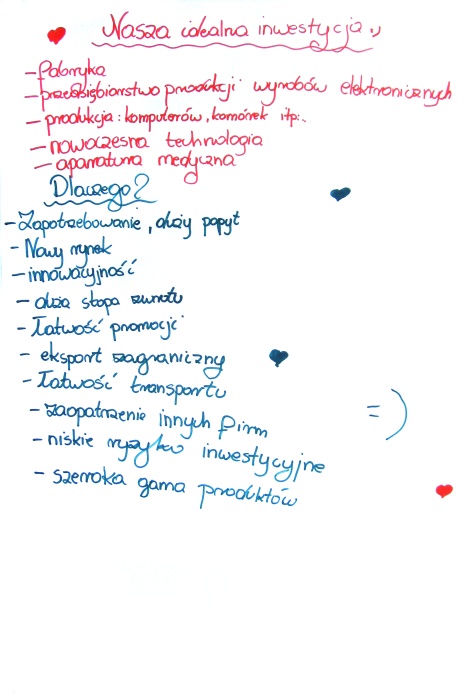 Nasza idealna inwestycja :)
- Fabryka
- przedsiębiorstwo produkcji wyrobów elektronicznych
- produkcja: komputerów, komórek itp.
- nowoczesna technologia
- aparatura medyczna
Dlaczego?
- Zapotrzebowanie, duży popyt
- Nowy rynek
- innowacyjność
- duża stopa zwrotu
- Łatwość promocji
- eksport zagraniczny
- Łatwość transportu
- zaopatrzenie innych firm
- niskie ryzyko inwestycyjne
- szeroka gama produktów
= )